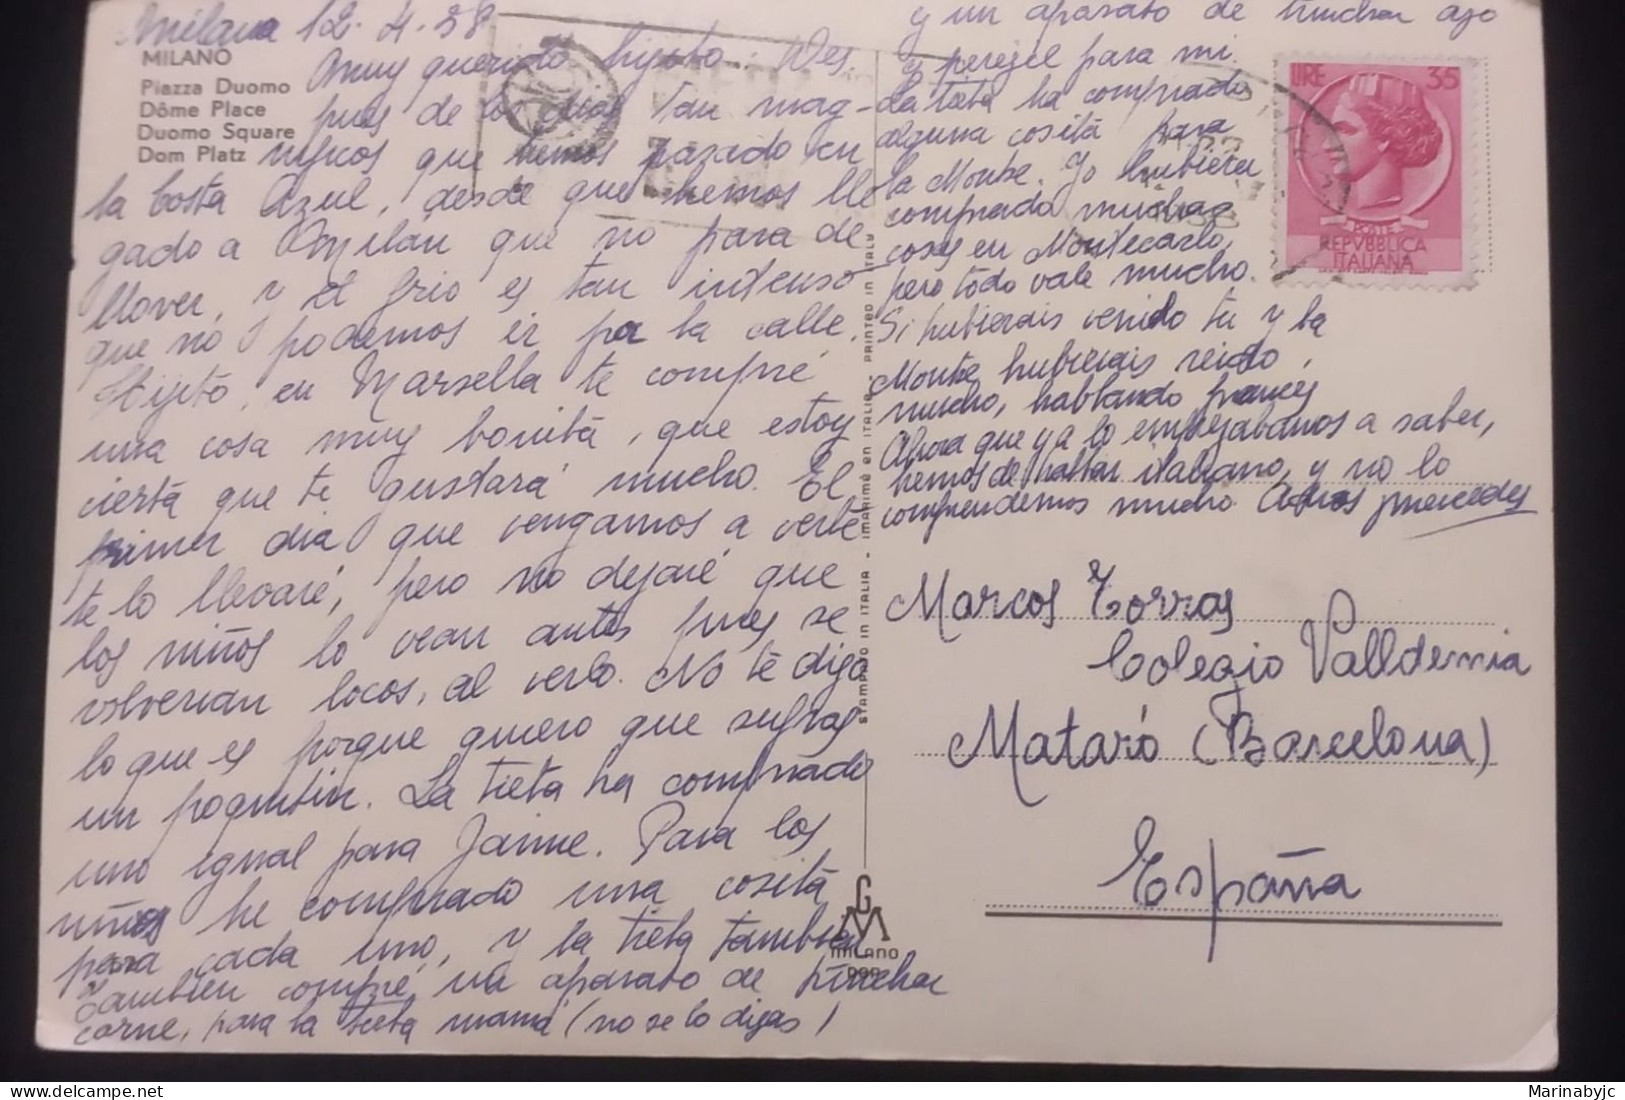 Milano 12-4-58
MILANO
Piazza Duomo
Dôme Place
Duomo Square
Dom Platz
muy querido hijito: Des-
pues de los dias tan mag-
nificos que hemos pasado en
la Costa Azul, desde que hemos lle
gado a Milán que no para de
llover, y el frio es tan intenso
que no podemos ir por la calle.
Hijito, en Marsella te compré
una cosa muy bonita, que estoy
cierta que te gustará mucho. El
primer dia que vengamos a verte
te lo llevaré, pero no dejaré que
los niños lo vean antes pues se
volverian locos, al verlo. No te digo
lo que es porque quiero que sufras
un poquitin. La tieta ha comprado
uno igual para Jaime. Para los
niños he comprado una cosita
para cada uno, y la tieta tambien
Tambien compré un aparato de pinchar
carne, para la tieta mamá (no se lo digas)
y un aparato de trinchar ajo
y perejil para mi.
La tieta ha comprado
alguna cosita para
la Montse. Yo hubiera
comprado muchas
cosas en Montecarlo,
pero todo vale mucho.
Si hubierais venido tu y la
Montse hubierais reido
mucho, hablando francés
Ahora que ya lo empezabamos a saber,
hemos de hablar italiano, y no lo
comprendemos mucho. Adios mercedes
LIRE 35
POSTE
REPVBBLICA
ITALIANA
STAMPATO IN ITALIA - IMPRIMÉ en ITALIE - PRINTED in ITALY
Marcos Torras
Colegio Valldemia
Mataró (Barcelona)
España
G
M
MILANO
999
Marinabyjc